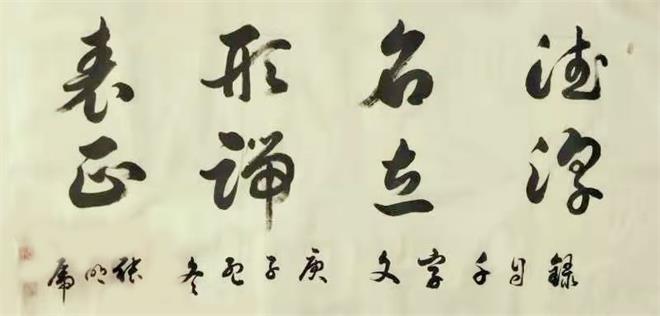 德建
名立
形端
表正
錄自千字文 庚子孟冬 張明虎